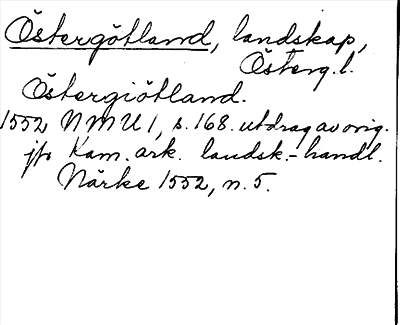 Östergötland, landskap,
Österg. l.
Östergiötland.
1552 NMU 1, s. 168. utdrag av orig.
jfr Kam. ark. landsk.-handl.
Närke 1552, n. 5.